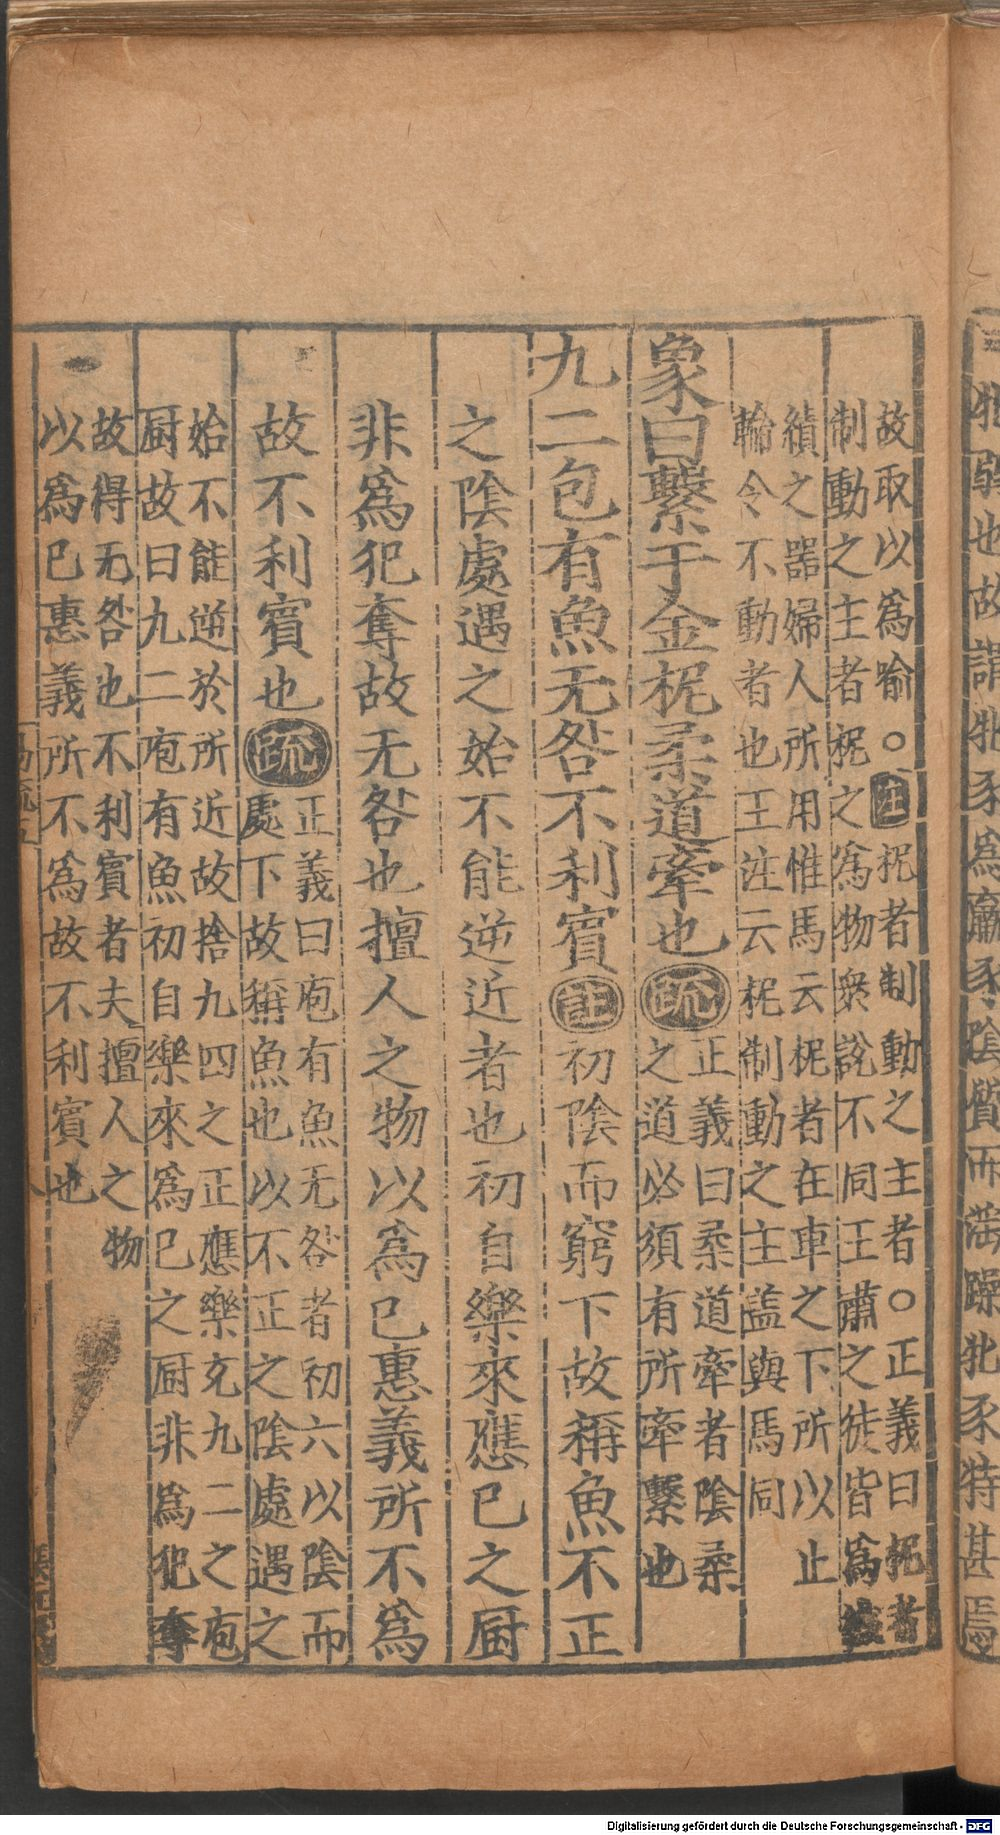 牝弱也故謂牝豕爲羸豕陰質而淫躁牝豕特甚焉
故取以爲喻○注柅者制動之主者○正義曰柅者
制動之主者柅之爲物衆說不同王肅之徒皆爲
績之器婦人所用惟馬云柅者在車之下所以止
輪令不動者也王注云柅制動之主盖與馬同
象曰繫于金柅柔道牽也疏
正義曰柔道牽者陰柔
之道必須有所牽繫也
九二包有魚无咎不利賓註初陰而窮下故稱魚不正
之陰處遇之始不能逆近者也初自樂來應已之厨
非爲犯奪故无咎也擅人之物以爲已惠義所不爲
故不利賓也疏
正義曰庖有魚无咎者初六以陰而
處下故稱魚也以不正之陰處遇之
始不能逆於所近故捨九四之正應樂充九二之庖
厨故曰九二庖有魚初自樂來爲已之厨非爲犯奪
故得无咎也不利賓者夫擅人之物
以爲已惠義所不爲故不利賓也
Digitalisierung gefördert durch die Deutsche Forschungsgemeinschaft - DFG